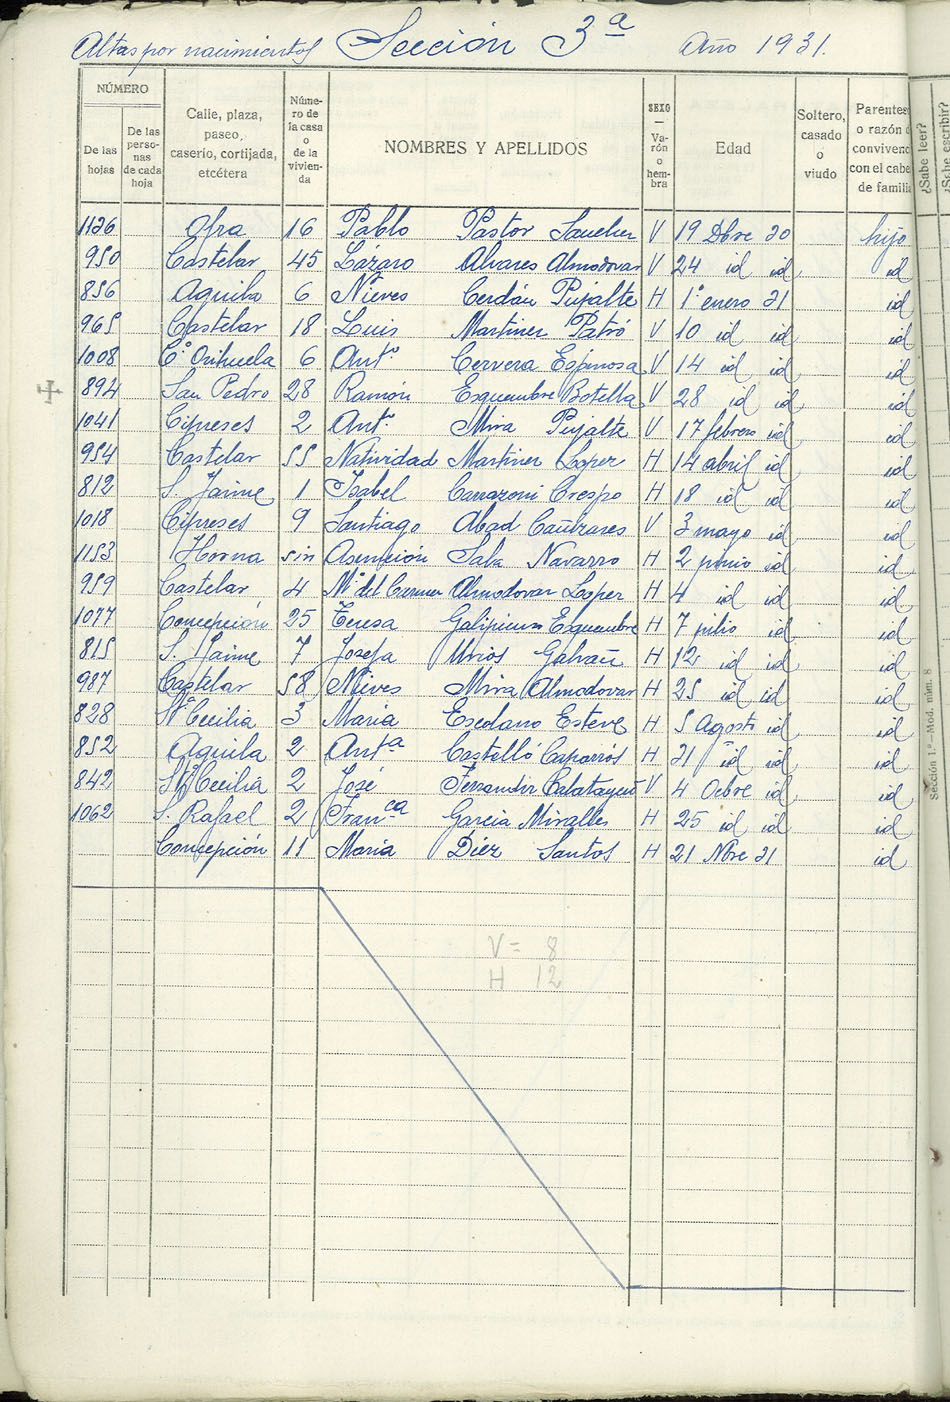 Altas por nacimientos Sección 3ª Año 1931.
NÚMERO
De las hojas
De las perso-nas de cada hoja
Calle, plaza, paseo, caserio, cortijada, etcétera
Núme-ro de la casa o de la vivien-da
NOMBRES Y APELLIDOS
SEXO — Va-rón o hem-bra
Edad
Soltero, casado o viudo
Parentes o razón convivenc con el cabe de familia
¿Sabe leer?
¿Sabe escribir?
1126 Afra 16 Pablo Pastor Sancher V 19 Dbre 30 hijo
950 Castelar 45 Lázaro Alvares Almodovar V 24 id id id
856 Aguila 6 Nieves Cerdán Pujalte H 1º enero 31 id
965 Castelar 18 Luis Martiner Patró V 10 id id id
1008 Cº Orihuela 6 Antº Cervera Espinosa V 14 id id id
894 San Pedro 28 Ramón Esquembre Botella V 28 id id id
1041 Cipreses 2 Antº Mira Pujalte V 17 febrero id id
954 Castelar 55 Natividad Martiner Loper H 14 abril id id
812 S. Jaime 1 Isabel Carrazoni Crespo H 18 id id id
1018 Cipreses 9 Santiago Abad Cañizares V 3 mayo id id
1153 Horna sin Asención Sala Navarro H 2 junio id id
959 Castelar 4 Mª del Carmen Almodovar Loper H 4 id id id
1077 Concepción 25 Teresa Galipienso Esquembre H 7 julio id id
815 S. Jaime 7 Josefa Urios Galvañ H 12 id id id
987 Castelar 58 Nieves Mira Almodovar H 25 id id id
828 Stª Cecilia 3 Maria Escolano Esteve H 5 Agosto id id
852 Aguila 2 Antª Castelló Caparrós H 31 id id id
842 Stª Cecilia 2 José Ferrandir Calatayud V 4 Ocbre id id
1062 S. Rafael 2 Franca Garcia Miralles H 25 id id id
Concepción 11 Maria Díez Santos H 21 Nbre 31 id
V = 8
H 12
Sección 1.ª—Mod. núm. 8